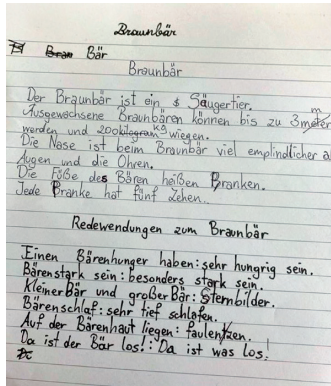 Braunbär
Bär
Braunbär
Der Braunbär ist ein Säugertier.
Ausgewachsene Braunbären können bis zu 3 m
werden und 200 kg wiegen.
Die Nase ist beim Braunbär viel empfindlicher a
Augen und die Ohren.
Die Füße des Bären heißen Pranken.
Jede Pranke hat fünf Zehen.
Redewendungen zum Braunbär
Einen Bärenhunger haben: sehr hungrig sein.
Bärenstark sein: besonders stark sein.
Kleiner Bär und großer Bär: Sternbilder.
Bärenschlaf: sehr tief schlafen.
Auf der Bärenhaut liegen: faulenzen.
Da ist der Bär los!: Da ist was los!